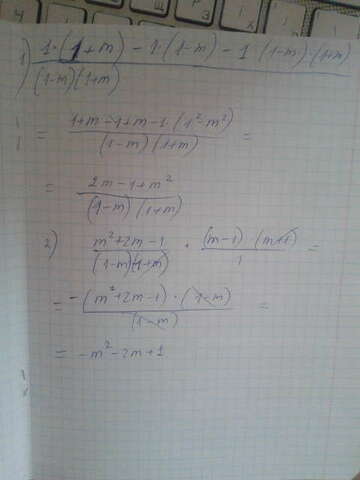 1) 1·(1+m) - 1·(1-m) - 1·(1-m)·(1+m)
(1-m)(1+m)
= 1+m-1+m-1·(1²-m²) =
(1-m)(1+m)
= 2m-1+m²
(1-m)(1+m)
2) m²+2m-1 · (m-1)·(m+1) =
(1-m)(1+m) 1
= -(m²+2m-1)·(1-m) =
(1-m)
= -m²-2m+1